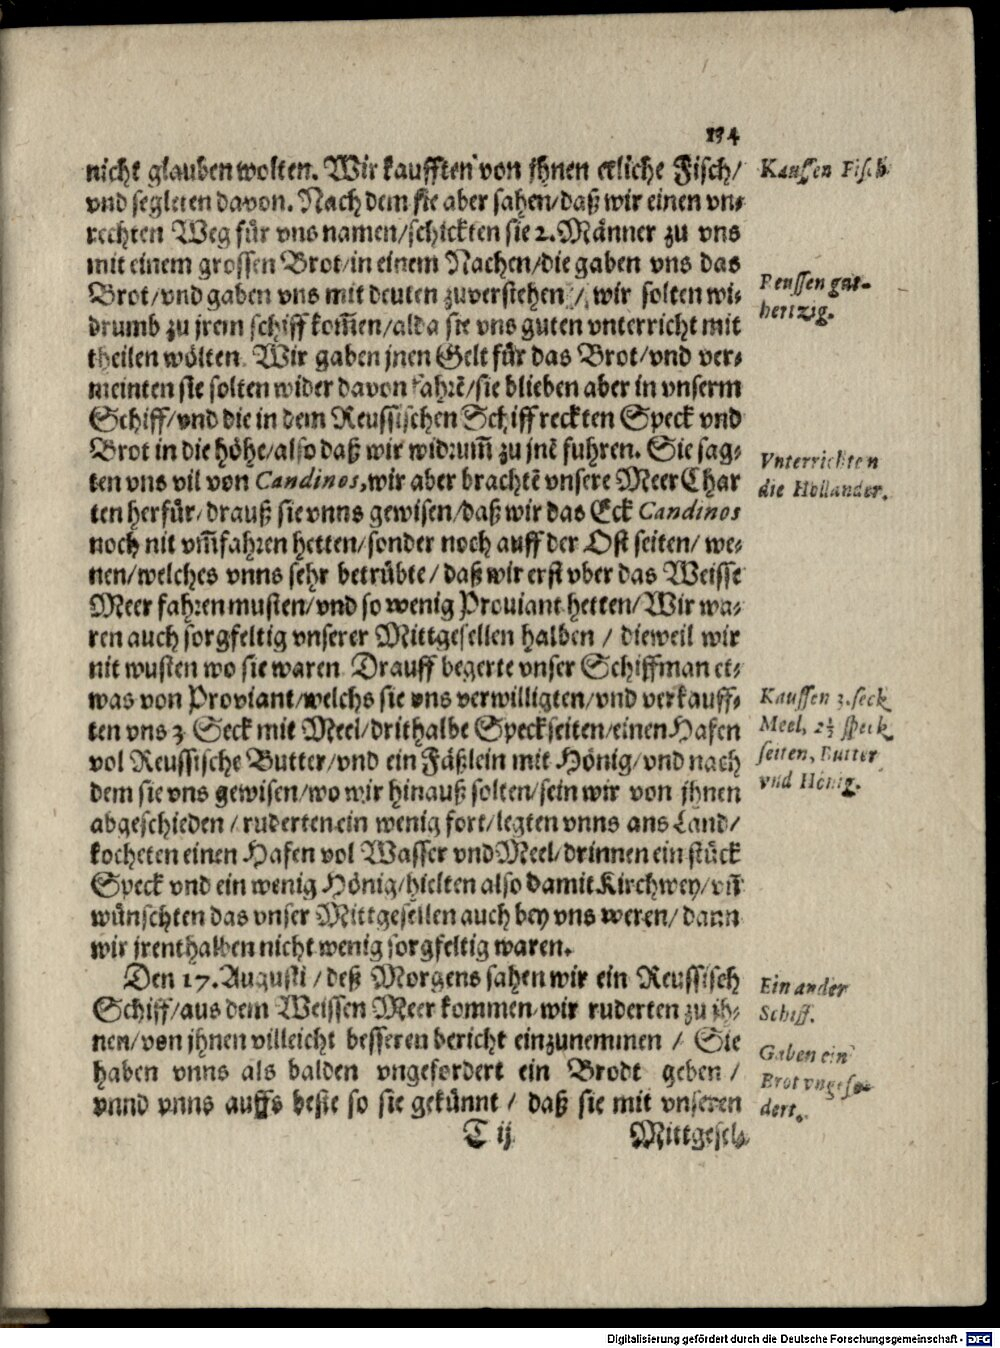 134
nicht glauben wolten. Wir kaufften von jhnen etliche Fisch/
vnd segleten davon. Nach dem sie aber sahen/daß wir einen vn⸗
rechten Weg fůr vns namen/schickten sie 2. Männer zu vns
mit einem grossen Brot/in einem Nachen/die gaben vns das
Brot/vnd gaben vns mit deuten zuverstehen/ wir solten wi⸗
drumb zu jrem schiff kom̃en/alda sie vns guten vnterricht mit
theilen wölten. Wir gaben jnen Gelt fůr das Brot/vnd ver⸗
meinten sie solten wider davon fahrẽ/sie blieben aber in vnserm
Schiff/vnd die in dem Reussischen Schiff reckten Speck vnd
Brot in die höhe/also daß wir widrum̃ zu jnẽ fuhren. Sie sag⸗
ten vns vil von Candinos, wir aber brachtẽ vnsere Meer Char
ten herfůr/drauß sie vnns gewisen/daß wir das Eck Candinos
noch nit vm̃fahren hetten/sonder noch auff der Ost seiten/ we⸗
nen/welches vnns sehr betrůbte/daß wir erst vber das Weisse
Meer fahren musten/vnd so wenig Proviant hetten/Wir wa⸗
ren auch sorgfeltig vnserer Mittgesellen halben / dieweil wir
nit wusten wo sie waren. Drauff begerte vnser Schiffman et⸗
was von Proviant/welchs sie vns verwilligten/vnd verkauff⸗
ten vns 3 Seck mit Meel/drithalbe Speckseiten/einen Hafen
vol Reussische Butter/vnd ein Fäßlein mit Hönig/vnd nach
dem sie vns gewisen/wo wir hinauß solten/sein wir von jhnen
abgeschieden / ruderten ein wenig fort/legten vnns ans Land/
kocheten einen Hafen vol Wasser vnd Meel/drinnen ein stůck
Speck vnd ein wenig Hönig/hielten also damit Kirchwey/vñ
wůnschten das vnser Mittgesellen auch bey vns weren/dann
wir jrenthalben nicht wenig sorgfeltig waren.
Den 17. Augusti / deß Morgens sahen wir ein Reussisch
Schiff/aus dem Weissen Meer kommen/wir ruderten zu jh⸗
nen/von jhnen villeicht besseren bericht einzunemmen / Sie
haben vnns als balden vngefordert ein Brodt geben /
vnnd vnns auffs beste so sie gekůnnt / daß sie mit vnseren
T ij Mittgesel⸗
Kauffen Fisch
Reussen gut-
hertzig.
Vnterrichten
die Hollander.
Kauffen 3. seck
Meel, 2½ speck
seiten, Butter
vnd Hönig.
Ein ander
Schiff.
Gaben ein
Brot vngefo-
dert.
Digitalisierung gefördert durch die Deutsche Forschungsgemeinschaft - DFG